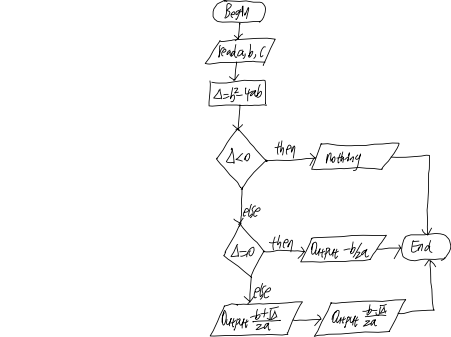 Begin
read a, b, c
Δ=b²-4ab
Δ<0
then
nothing
else
Δ=0
then
Output -b/2a
End
else
Output (-b+√Δ)/2a
Output (-b-√Δ)/2a